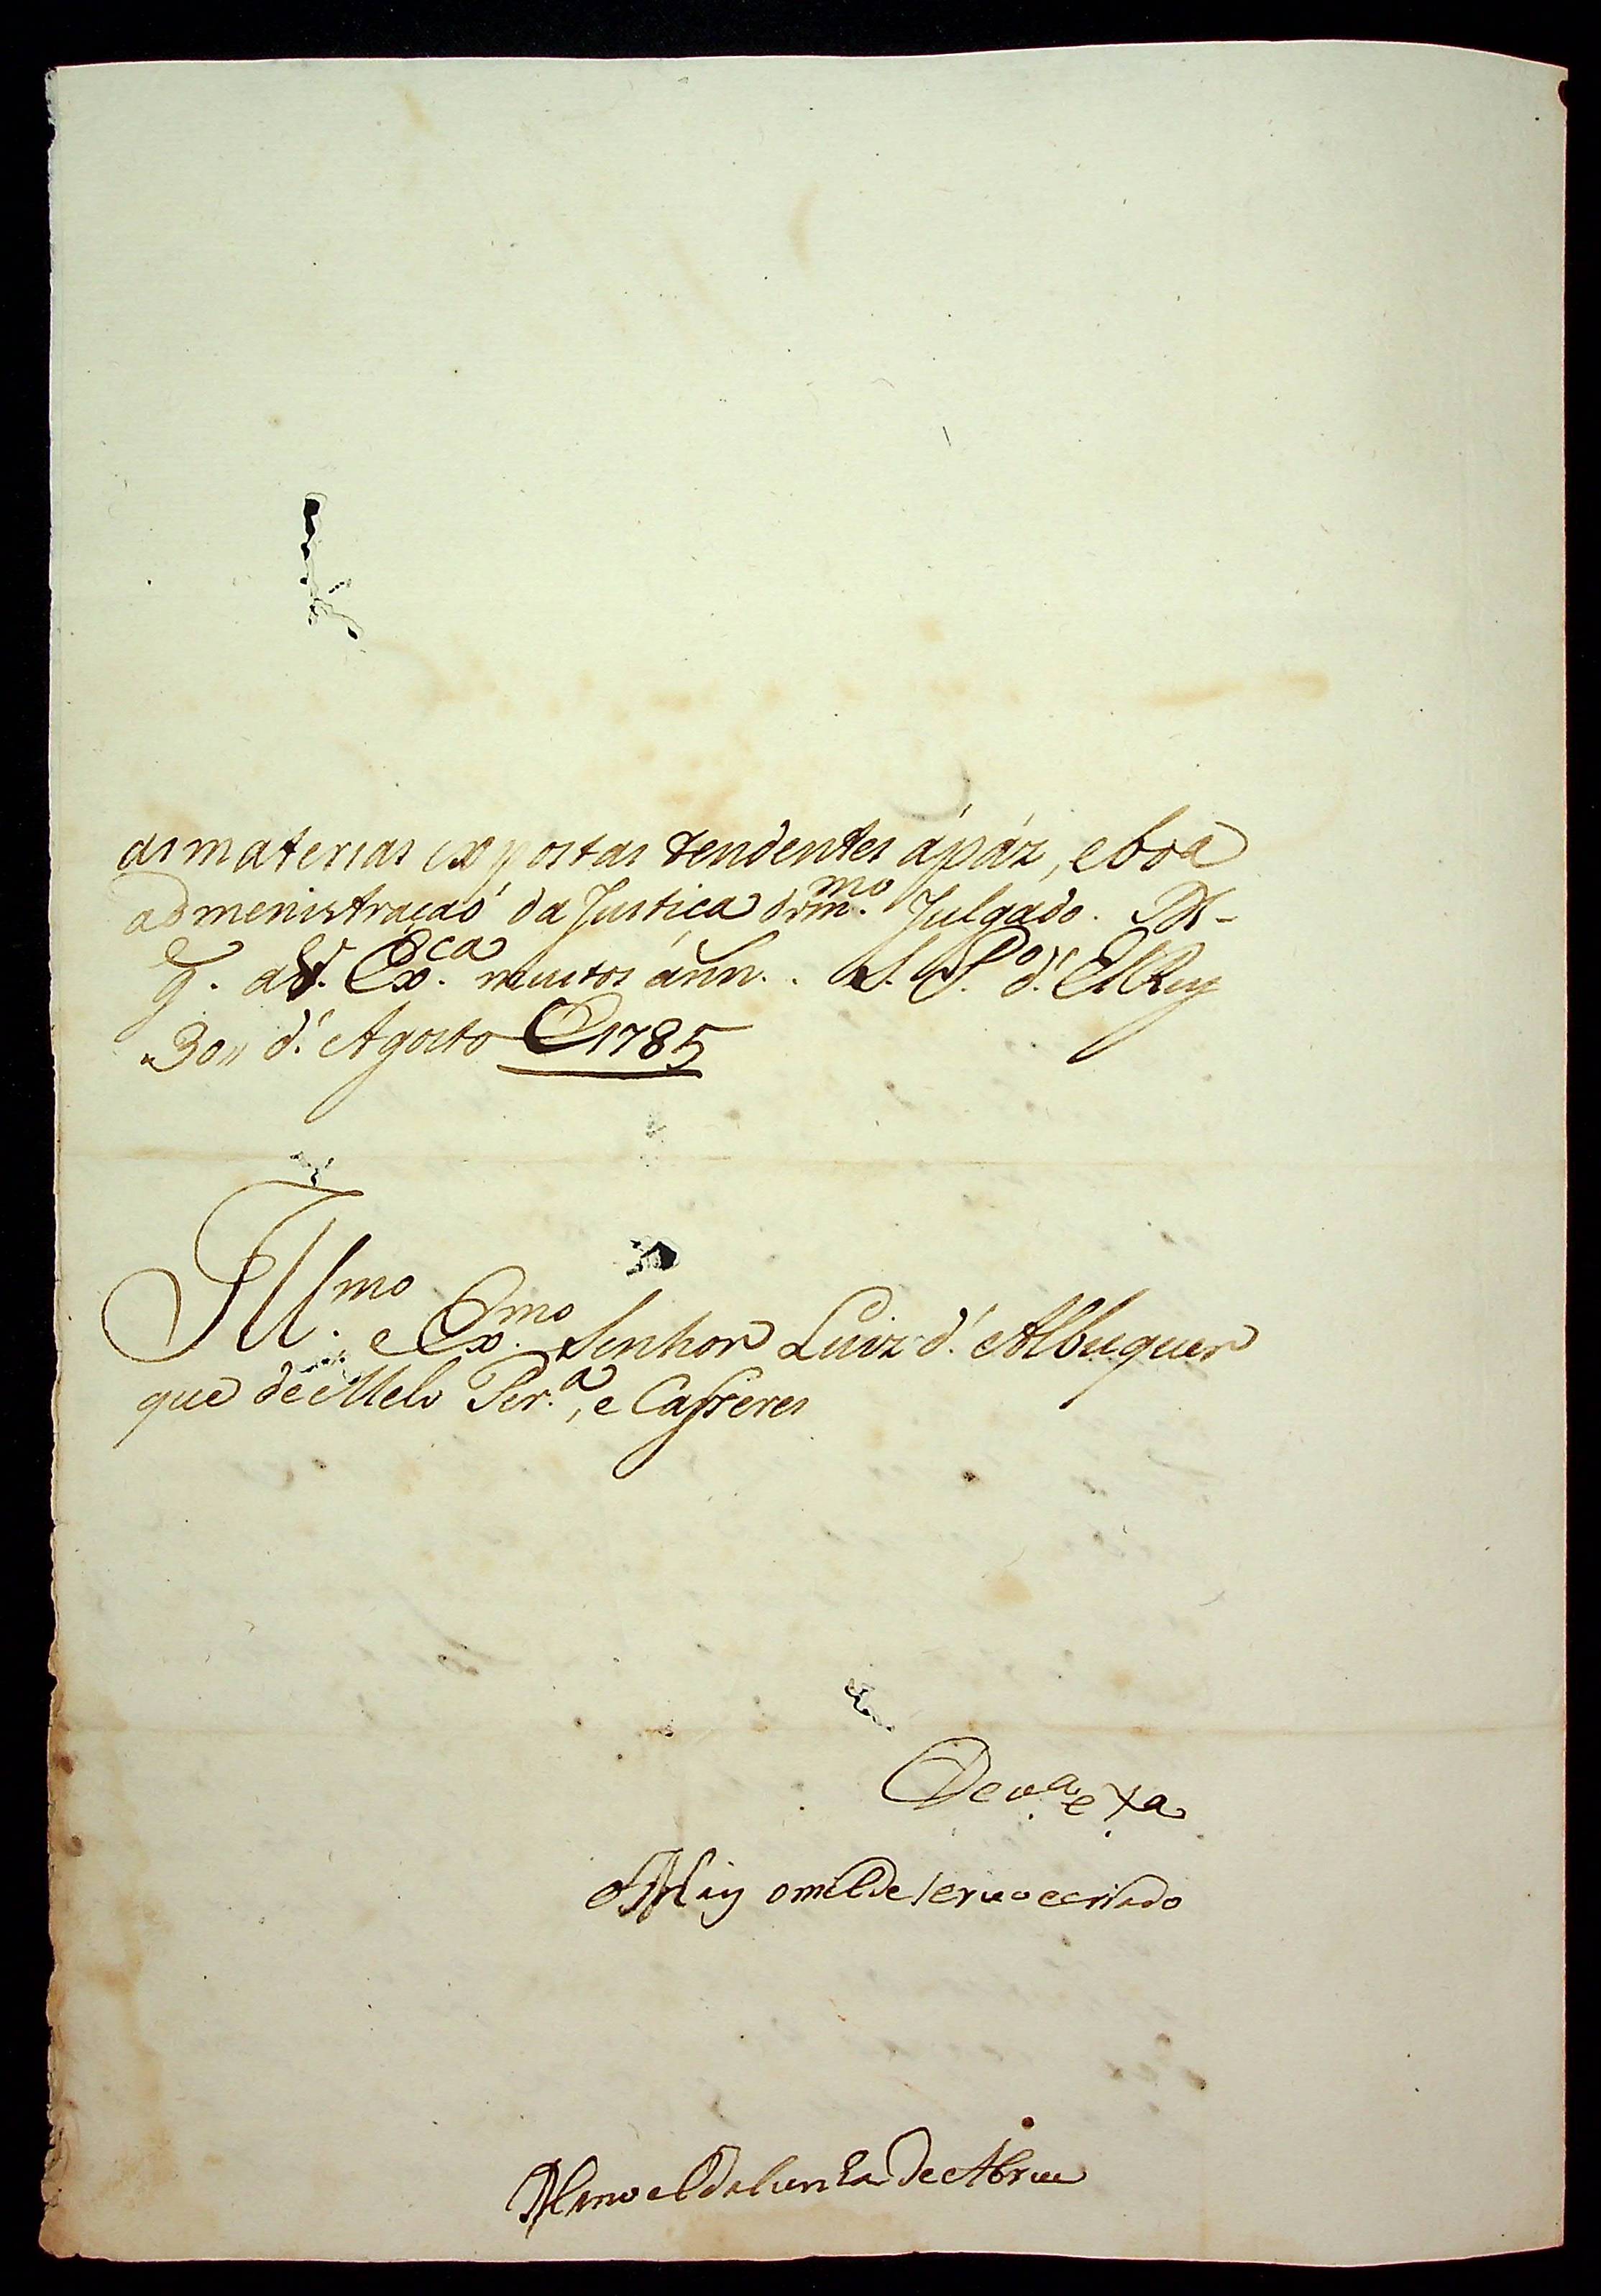 as materias expostas tendentes ápáz, eboa
admenistraçaó da Justiça dom.mo Julgado. Ds
g. aV. Ex.ca muitos ánn. . S. P.o d'. ElRey
30,, d'. Agosto 1785
Ill.mo e Ex.mo Senhor Luiz d'. Albuquer
que de Mello Per.a, e Casseres
De v.a ex.a
Muy omilde servo ecriado
Manoel da Cunha De Abreu